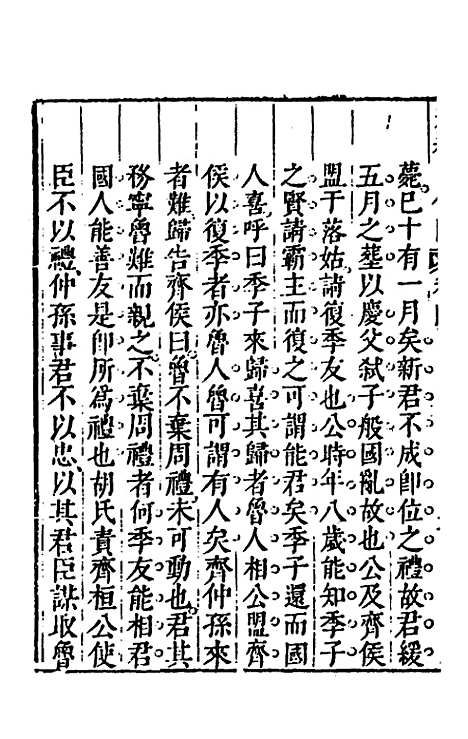 薨已十有一月矣新君不成卽位之禮故君緩
五月之塟以慶父弑子般國亂故也公及齊侯
盟于落姑請復季友也公時年八歲能知季子
之賢請霸主而復之可謂能君矣季子還而國
人喜呼曰季子來歸喜其歸者魯人相公盟齊
侯以復季者亦魯人魯可謂有人矣齊仲孫來
者難歸告齊侯曰魯不棄周禮未可動也君其
務寧魯難而親之不棄周禮者何季友能相君
國人能善友是卽所爲禮也胡氏責齊桓公使
臣不以禮仲孫事君不以忠以其君臣謀取魯